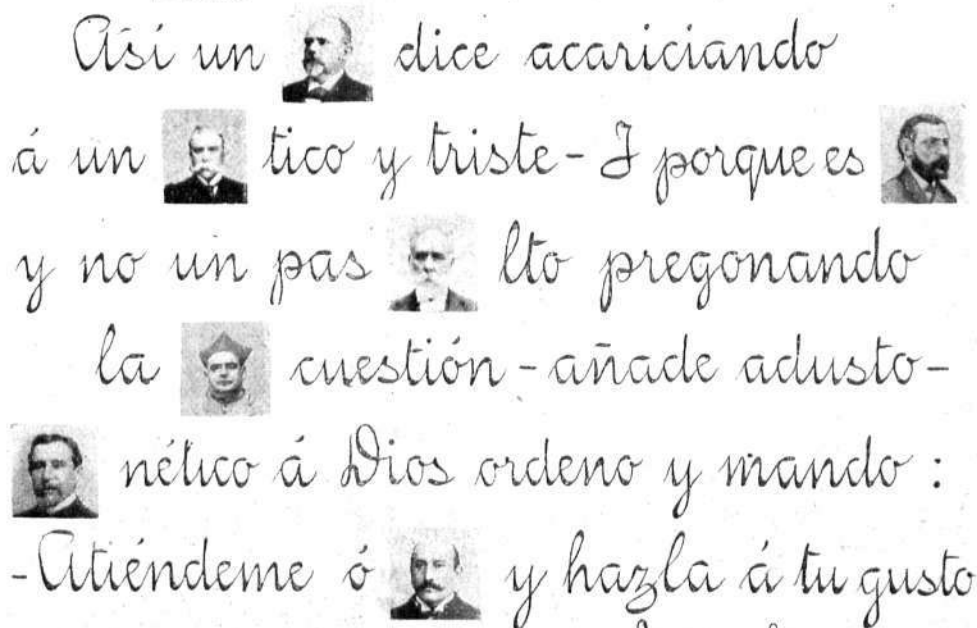 Así un dice acariciando
á un tico y triste - I porque es
y no un pas lto pregonando
la cuestión - añade adusto -
nético á Dios ordeno y mando :
- Atiéndeme ó y hazla á tu gusto